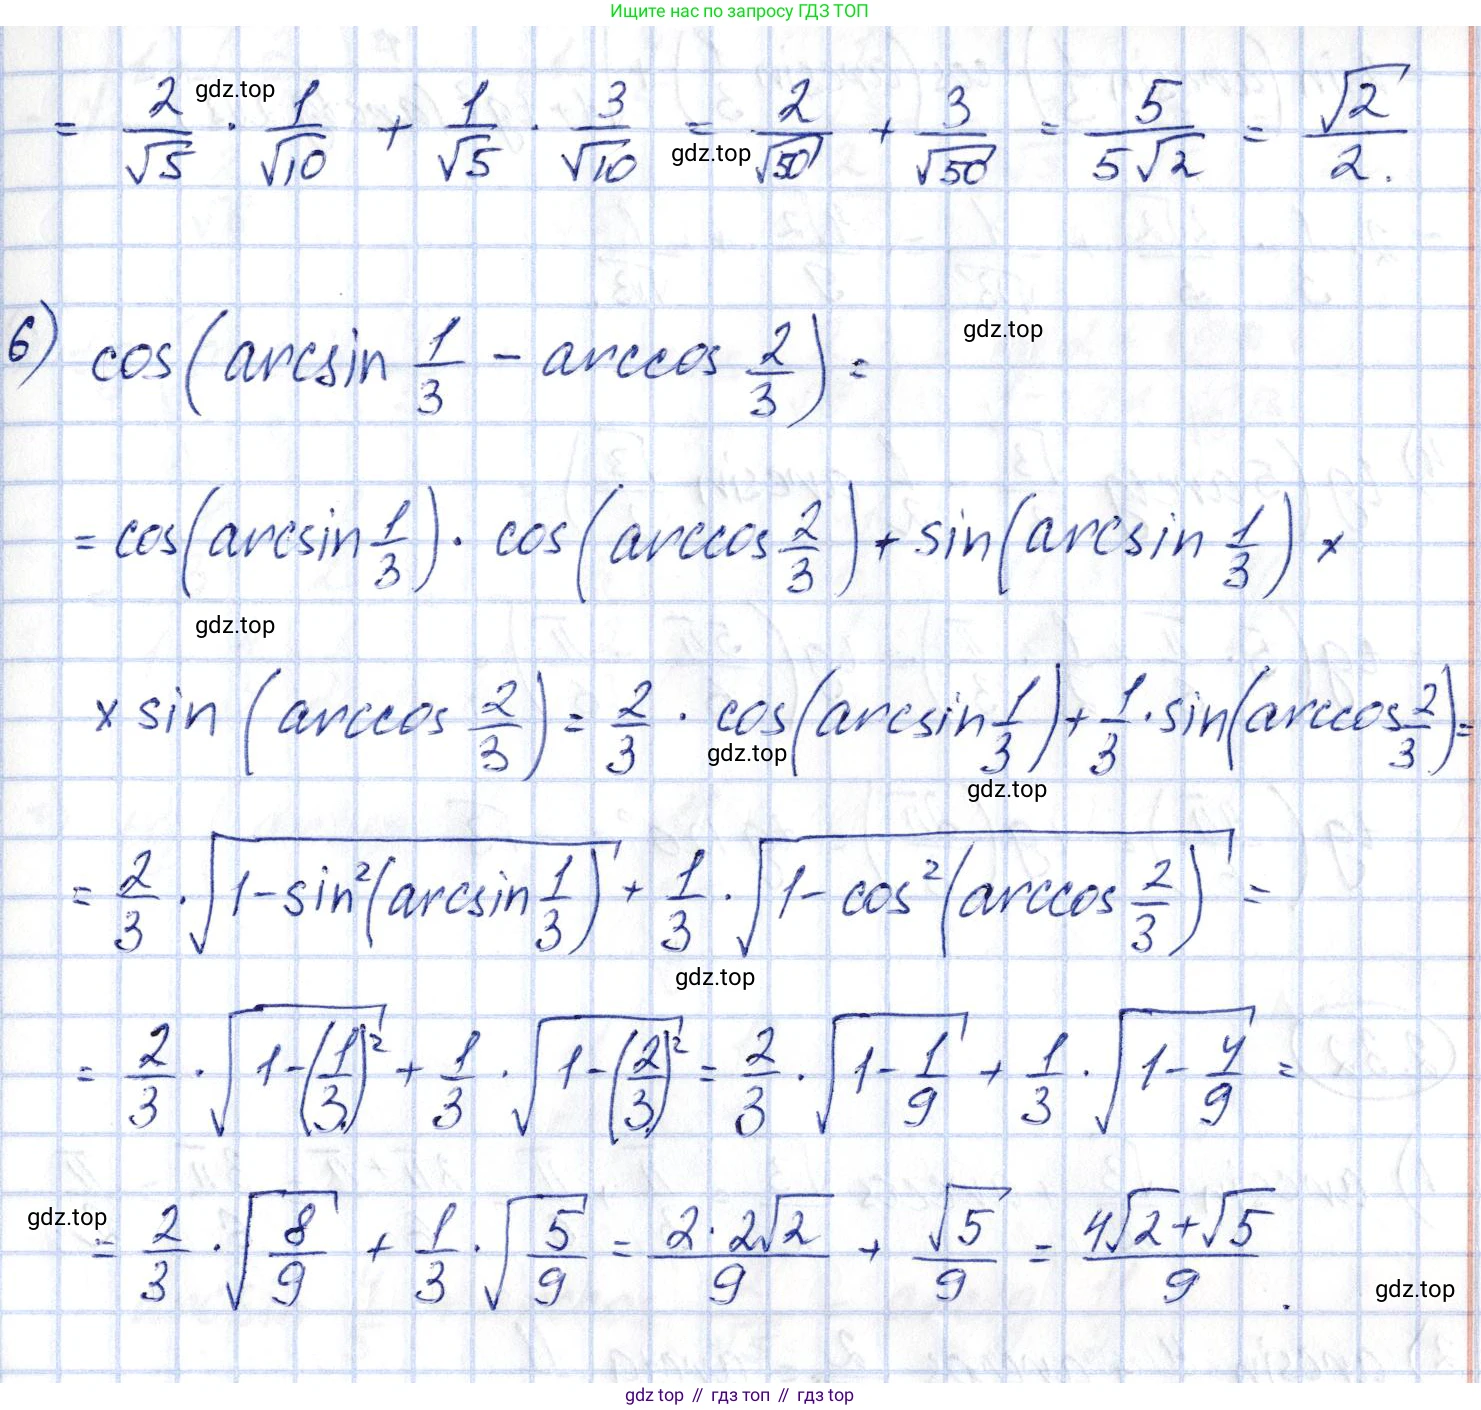 Ищите нас по запросу ГДЗ ТОП
= 2/√5 · 1/√10 + 1/√5 · 3/√10 = 2/√50 + 3/√50 = 5/(5√2) = √2/2.
gdz.top
gdz.top
6) cos(arcsin 1/3 - arccos 2/3) =
gdz.top
= cos(arcsin 1/3) · cos(arccos 2/3) + sin(arcsin 1/3) ×
gdz.top
× sin(arccos 2/3) = 2/3 · cos(arcsin 1/3) + 1/3 · sin(arccos 2/3) =
gdz.top
gdz.top
= 2/3 · √(1-sin²(arcsin 1/3)) + 1/3 · √(1-cos²(arccos 2/3)) =
gdz.top
= 2/3 · √(1-(1/3)²) + 1/3 · √(1-(2/3)²) = 2/3 · √(1-1/9) + 1/3 · √(1-4/9) =
gdz.top
= 2/3 · √(8/9) + 1/3 · √(5/9) = (2·2√2)/9 + √5/9 = (4√2+√5)/9.
gdz.top
gdz top // гдз топ // гдз top